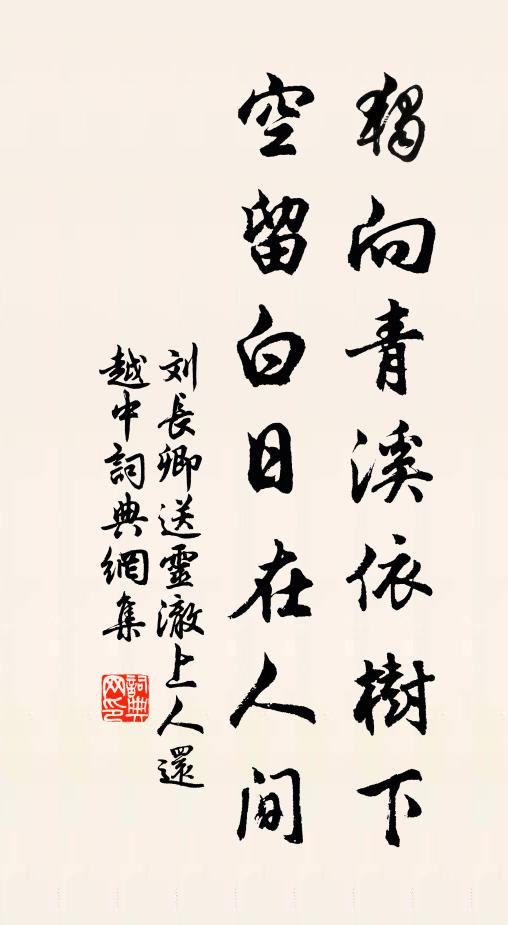 獨向青溪依樹下
空留白日在人间
刘長卿送靈澈上人還
越中詞典網集
詞典
网印